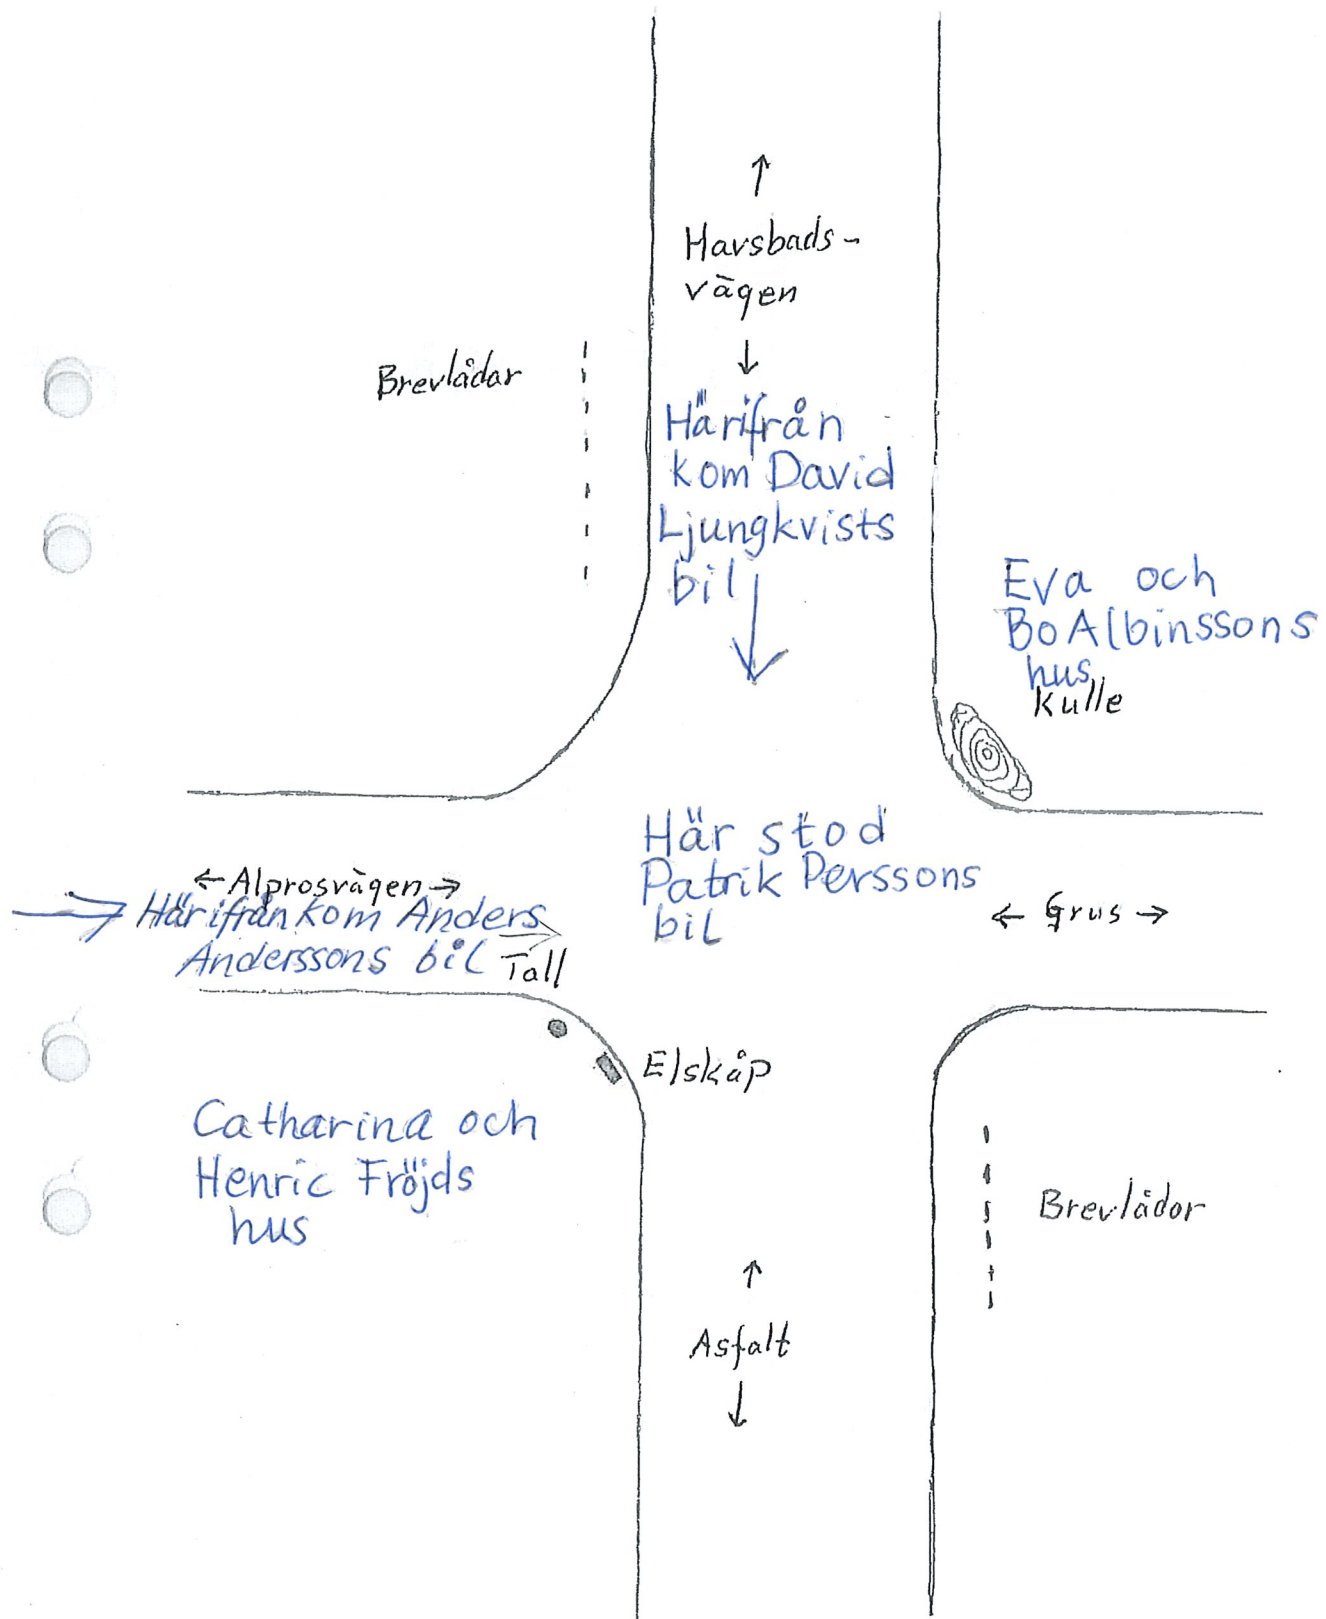 Havsbads-
vägen
Brevlådor
Härifrån
kom David
Ljungkvists
bil
Eva och
Bo Albinssons
hus
Kulle
Här stod
Patrik Perssons
bil
Alprosvägen
Härifrån kom Anders
Anderssons bil
Tall
Grus
Elskåp
Catharina och
Henric Fröjds
hus
Brevlådor
Asfalt